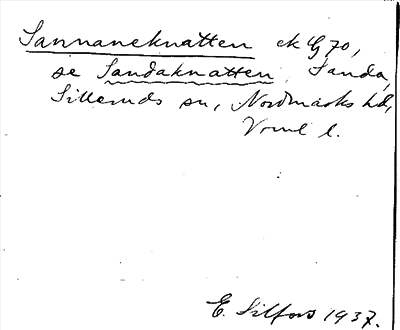 Sannaneknatten ek G 70,
se Sandaknatten, Sanda,
Silleruds sn, Nordmarks hd,
Vrml l.
E. Silfors 1937.